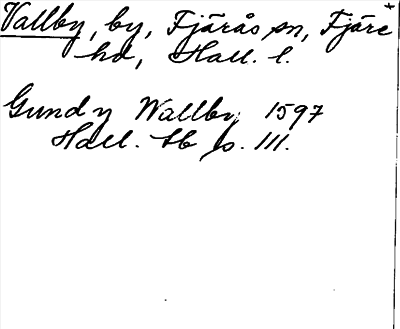 Vallby, by, Fjärås sn, Fjäre
hd, Hall. l.
Gund y Wallby, 1597
Hall. tb s. III.